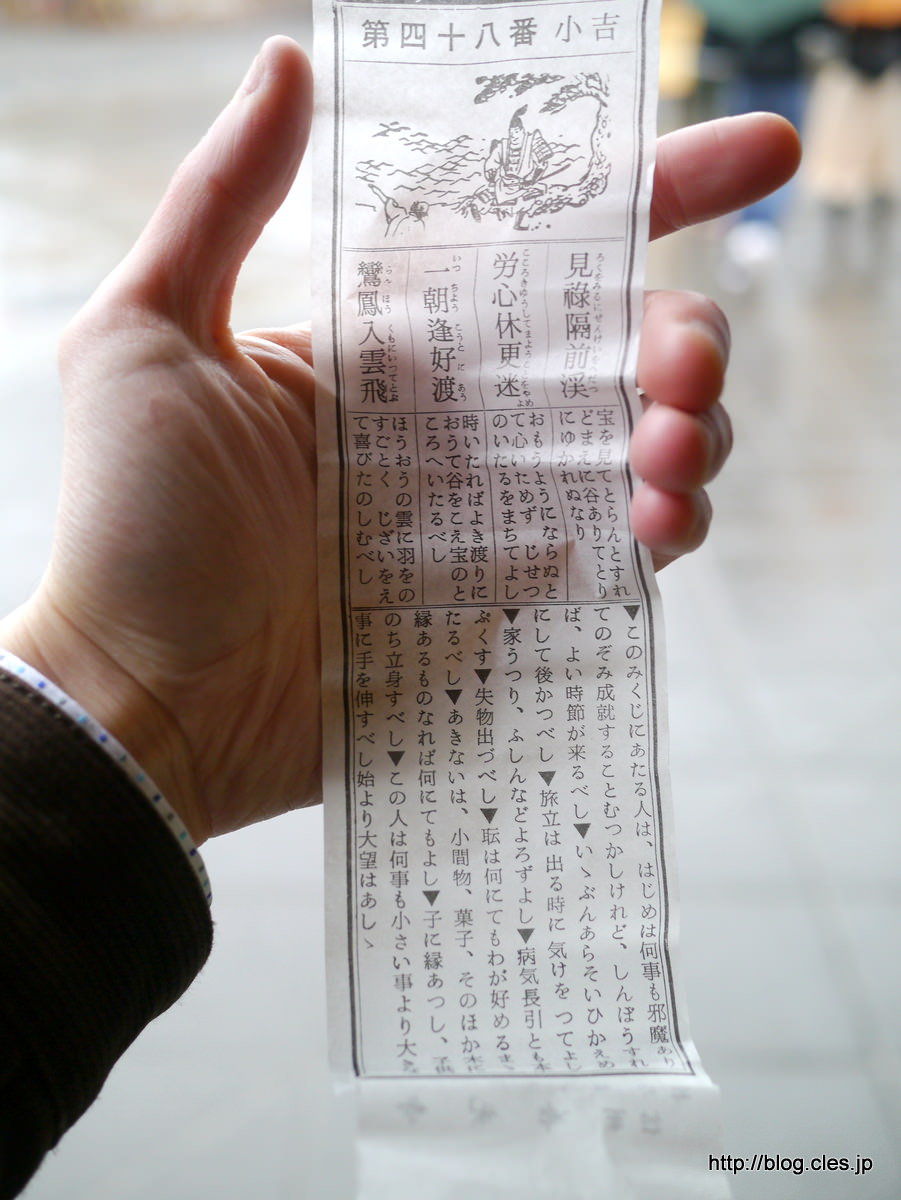 第四十八番 小吉
見祿隔前渓
労心休更迷
一朝逢好渡
鸞鳳入雲飛
いつ ちよう こうと に あう
らん ほう くもにいつてとぶ
宝を見てとらんとすれ
どまえに谷ありてとり
にゆかれぬなり
おもうようにならぬと
て心いためず じせつ
のいたるをまちてよし
時いたればよき渡りに
おうて谷をこえ宝のと
ころへいたるべし
ほうおうの雲に羽をの
すごとく じざいをえ
て喜びたのしむべし
▼このみくじにあたる人は、はじめは何事も邪魔あり
てのぞみ成就することむつかしけれど、しんぼうすれ
ば、よい時節が来るべし▼いゝぶんあらそいひかえめ
にして後かつべし▼旅立は 出る時に 気けを つてよし
▼家うつり、ふしんなどよろずよし▼病気長引とも本
ぷくす▼失物出づべし▼耺は何にてもわが好める
たるべし▼あきないは、小間物、菓子、そのほか
縁あるものなれば何にてもよし▼子に縁あつし、
のち立身すべし▼この人は何事も小さい事より大
事に手を伸すべし始より大望はあしゝ
http://blog.cles.jp